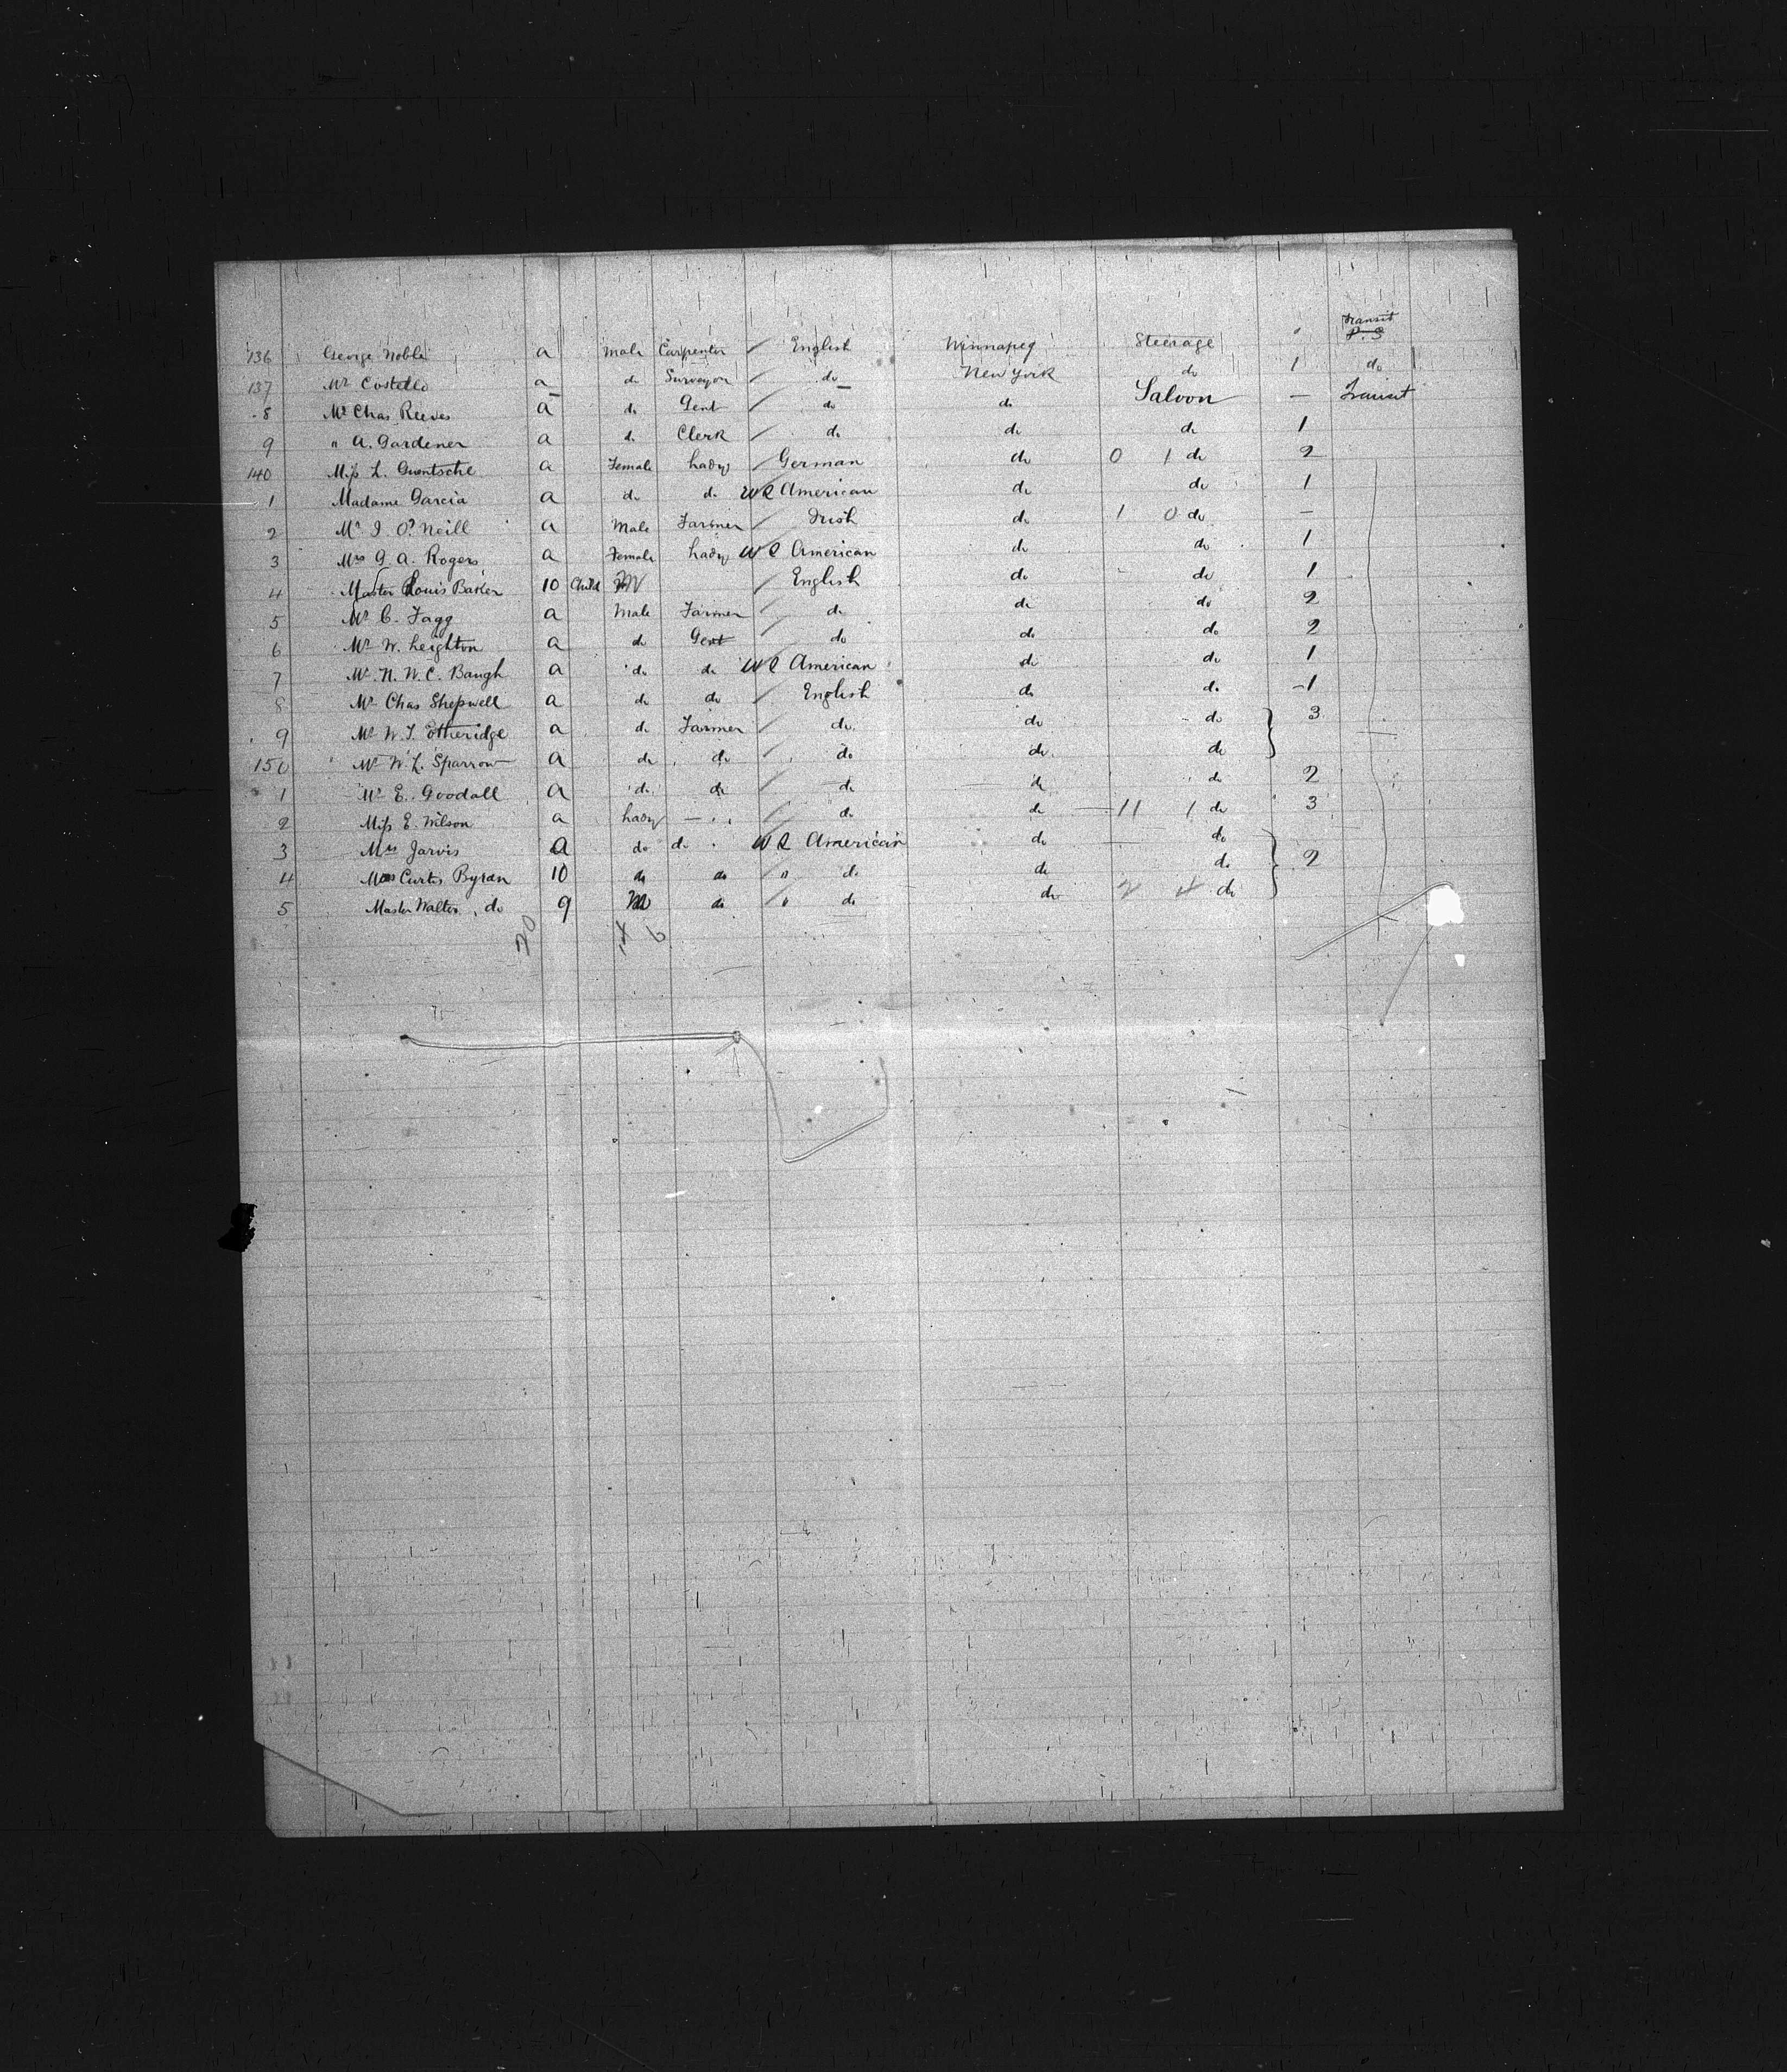 Transit
136 George Noble a Male Carpenter / English Winnapeg Steerage P.S
137 Mr Costello a do Surveyor / do New York do 1 do
8 Mr Chas Reeves a do Gent / do do Saloon — Transit
9 " A. Gardener a do Clerk / do do do 1
140 Miss L. a Female Lady / German do 0 1 do 2
1 Madame Garcia a do do U S American do do 1
2 Mr J. O'Neill a Male Farmer / Irish do 1 0 do —
3 Mrs G. A. Rogers a Female Lady U S American do do 1
4 Master Louis Baker 10 Child M / English do do 1
5 Mr C. Fagg a Male Farmer / do do do 2
6 Mr W. Leighton a do Gent / do do do 2
7 Mr N. W. C. Baugh a do do U S American do do 1
8 Mr Chas Shepwell a do do / English do do 1
9 Mr W. J. Etheridge a do Farmer / do do do } 3
150 Mr W. L. Sparrow a do do / do do do
1 Mr E. Goodall a do do / do do do 2
2 Miss E. Wilson a Lady — / do do 11 1 do 3
3 Mrs Jarvis a do do U S American do do } 2
4 Curtis Byran 10 do do " do do do
5 Master Walter do 9 M do " do do 2 4 do
20 14 6